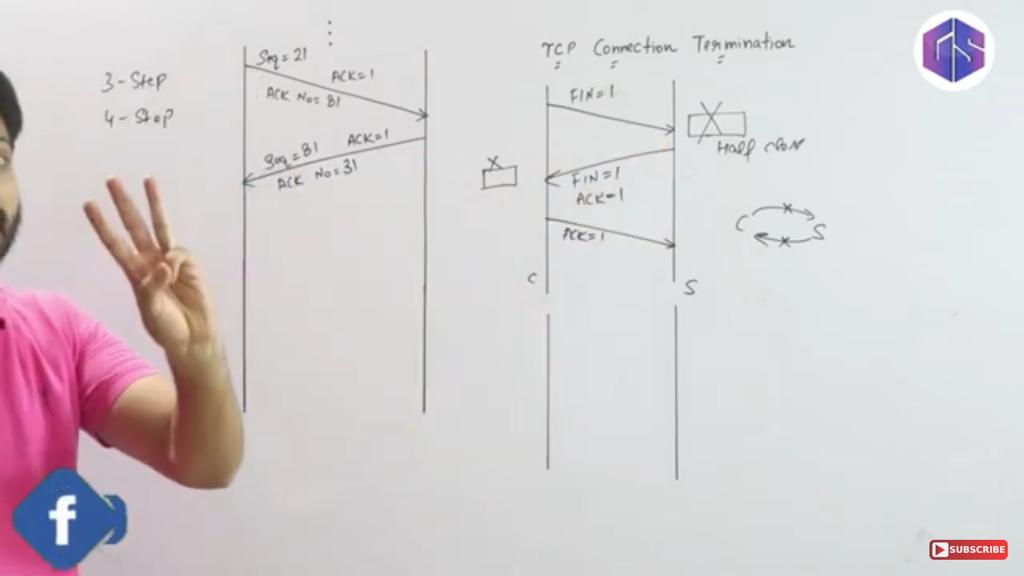 3-Step
4-Step
Seq=21
ACK=1
ACK No=81
ACK=1
Seq=81
ACK No=31
TCP Connection Termination
FIN=1
Half close
FIN=1
ACK=1
ACK=1
C
S
C
S
f
SUBSCRIBE